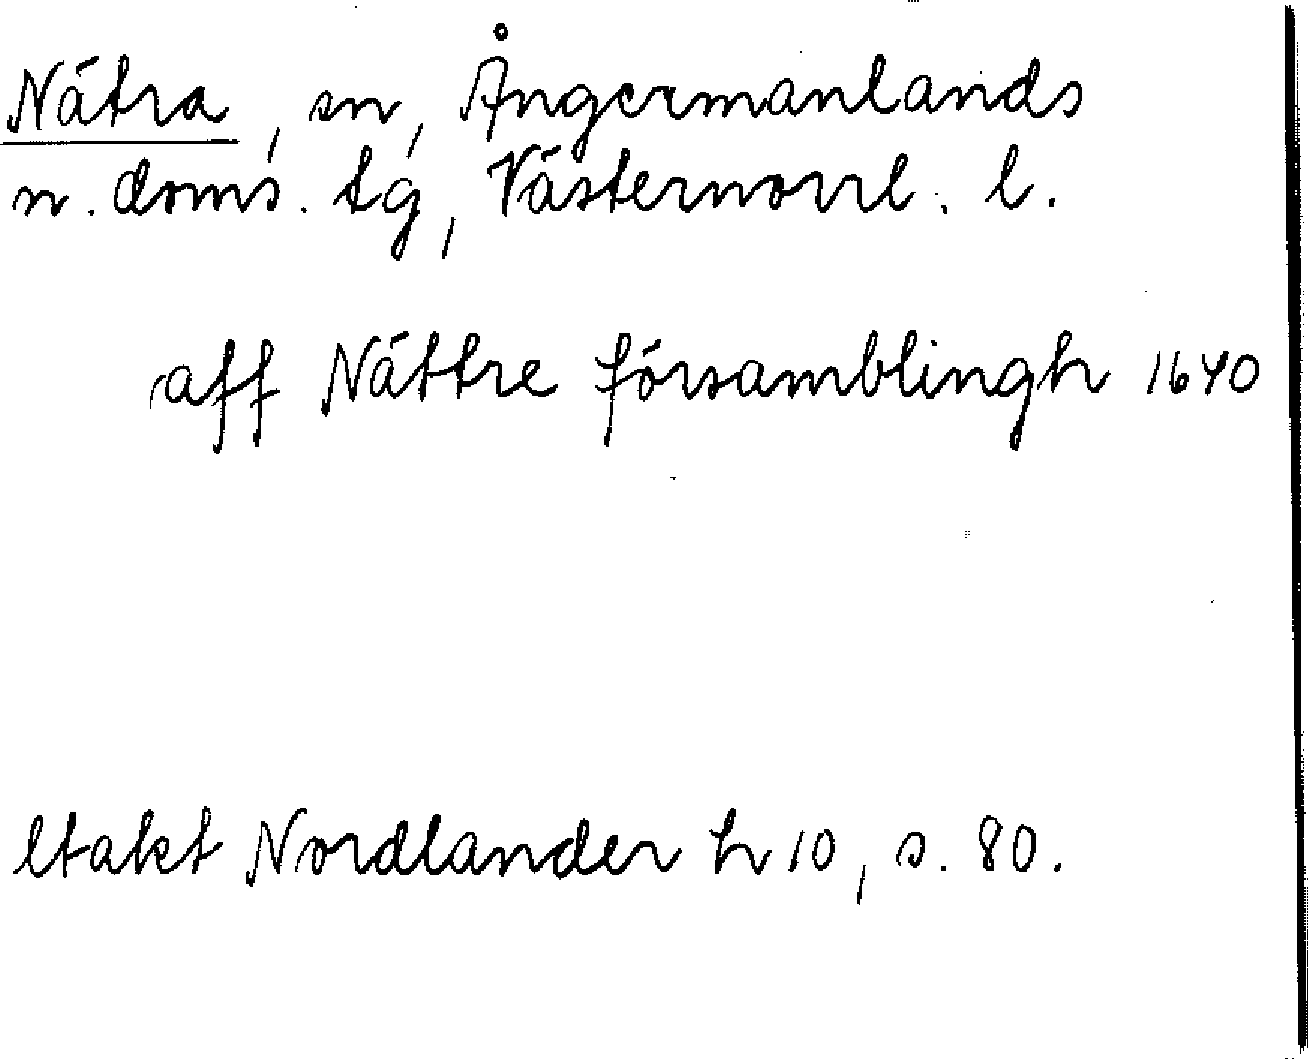 Nätra, sn, Ångermanlands
n. doms. tg, Västernorrl. l.
aff Nättre församblingh 1640
Utakt Nordlander h 10, s. 80.